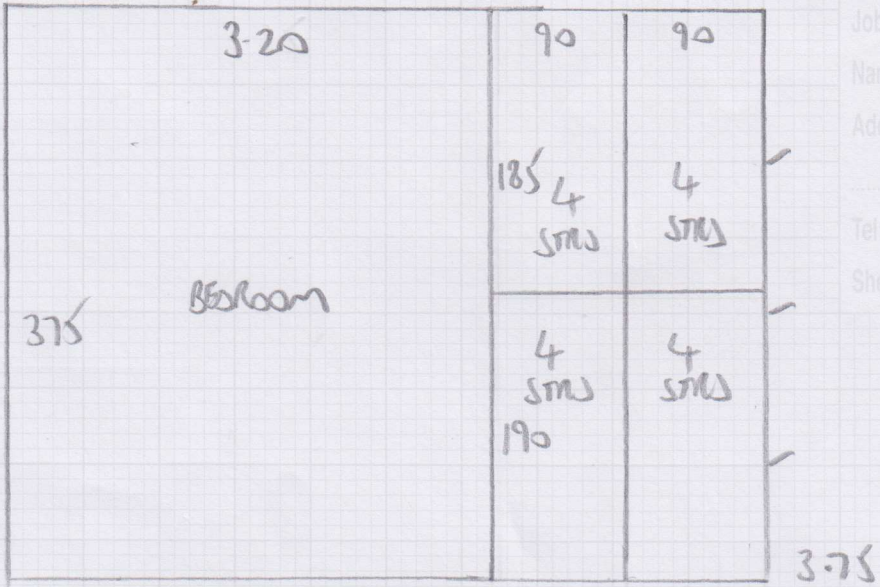 3.20
90
90
185
4
STRS
4
STRS
BEDROOM
375
4
STRS
4
STRS
190
3.75
Job
Nam
Add
Tel
She